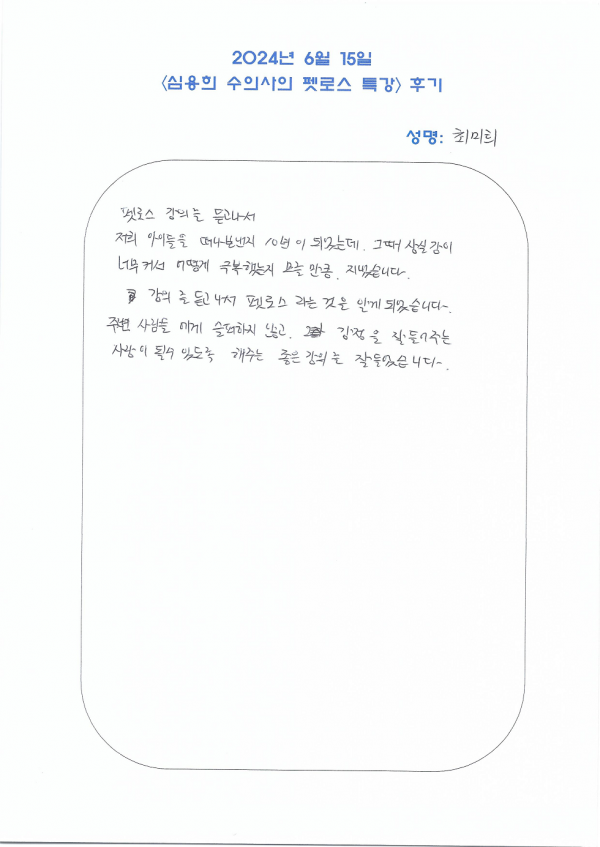 2024년 6월 15일
<심용희 수의사의 펫로스 특강> 후기
성명: 최미희
펫로스 강의를 듣고나서
저희 아이들을 떠나보낸지 10년이 되었는데. 그때 상실감이
너무커서 어떻게 극복했는지 모를 만큼. 지냈습니다.
강의를 듣고 나서 펫로스 라는 것을 알게 되었습니다~.
주변 사람들 에게 슬퍼하지 않고. 감정을 잘.들어주는
사람이 될수 있도록 해주는 좋은강의를 잘들었습니다~.